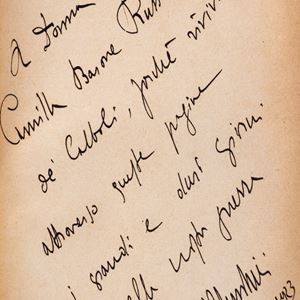 A Donna
Camilla Barone Russo
de' Calboli, perchè riviva
attraverso queste pagine
i grandi e duri giorni
della nostra guerra